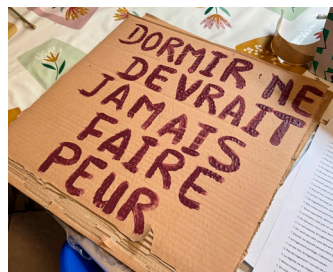 DORMIR NE
DEVRAIT
JAMAIS
FAIRE
PEUR